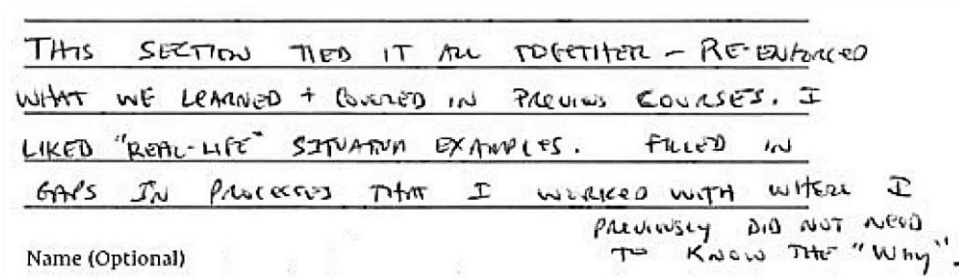 THIS SECTION TIED IT ALL TOGETHER - RE-ENFORCED
WHAT WE LEARNED + COVERED IN PREVIOUS COURSES. I
LIKED "REAL-LIFE" SITUATION EXAMPLES. FILLED IN
GAPS IN PROCESSES THAT I WORKED WITH WHERE I
PREVIOUSLY DID NOT NEED
TO KNOW THE "WHY".
Name (Optional)